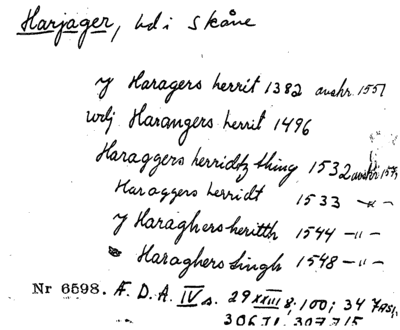 Harjager, hd i Skåne
y Haragers herrit 1382 avskr. 1551
udj Harangers herrit 1496
Haraggers herridtz thing 1532 avskr. 157
Haraggers herridt 1533 —〃—
y Haraghers heritth 1544 —〃—
Haraghers tingh 1548 —〃—
Nr 6598. Æ. D. A. IV s. 29 XXIII 8, 100; 34
306, 307, 715